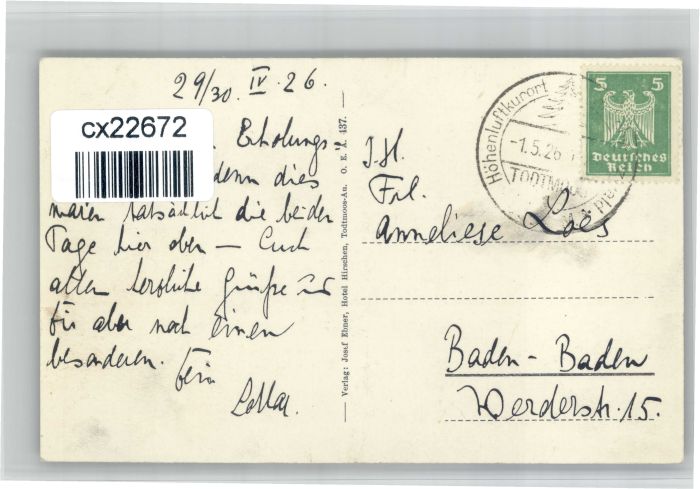 29/30. IV. 26.
cx22672
Erholungs-
denn dies
waren tatsächlich die beiden
Tage hier oben – Euch
allen herzliche Grüße und
für aber noch einen
besonderen.
Dein
Lothar.
Verlag: Josef Ebner, Hotel Hirschen, Todtmoos-Au. O. E. A. 437.
Höhenluftkurort
-1.5.26
TODTMOOS
5 5
Deutsches
Reich
Frl.
Anneliese Loes
Baden-Baden
Werderstr. 15.